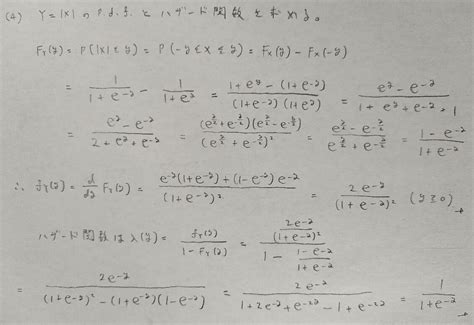 (4) Y=|X| の p.d.f. と ハザード関数 を 求める。
F_Y(y) = P(|X| ≤ y) = P(-y ≤ X ≤ y) = F_X(y) - F_X(-y)
= 1/(1+e^{-y}) - 1/(1+e^{y}) = (1+e^{y} - (1+e^{-y}))/((1+e^{-y})(1+e^{y})) = (e^{y} - e^{-y})/(1+e^{y}+e^{-y}+1)
= (e^{y} - e^{-y})/(2+e^{y}+e^{-y}) = ((e^{y/2}+e^{-y/2})(e^{y/2}-e^{-y/2}))/((e^{y/2}+e^{-y/2})^2) = (e^{y/2}-e^{-y/2})/(e^{y/2}+e^{-y/2}) = (1-e^{-y})/(1+e^{-y})
∴ f_Y(y) = d/dy F_Y(y) = (e^{-y}(1+e^{-y})+(1-e^{-y})e^{-y})/((1+e^{-y})^2) = 2e^{-y}/((1+e^{-y})^2) (y≥0)
ハザード関数は λ(y) = f_Y(y)/(1-F_Y(y)) = (2e^{-y}/((1+e^{-y})^2))/(1 - (1-e^{-y})/(1+e^{-y}))
= 2e^{-y}/((1+e^{-y})^2 - (1+e^{-y})(1-e^{-y})) = 2e^{-y}/(1+2e^{-y}+e^{-2y}-1+e^{-2y}) = 1/(1+e^{-y})